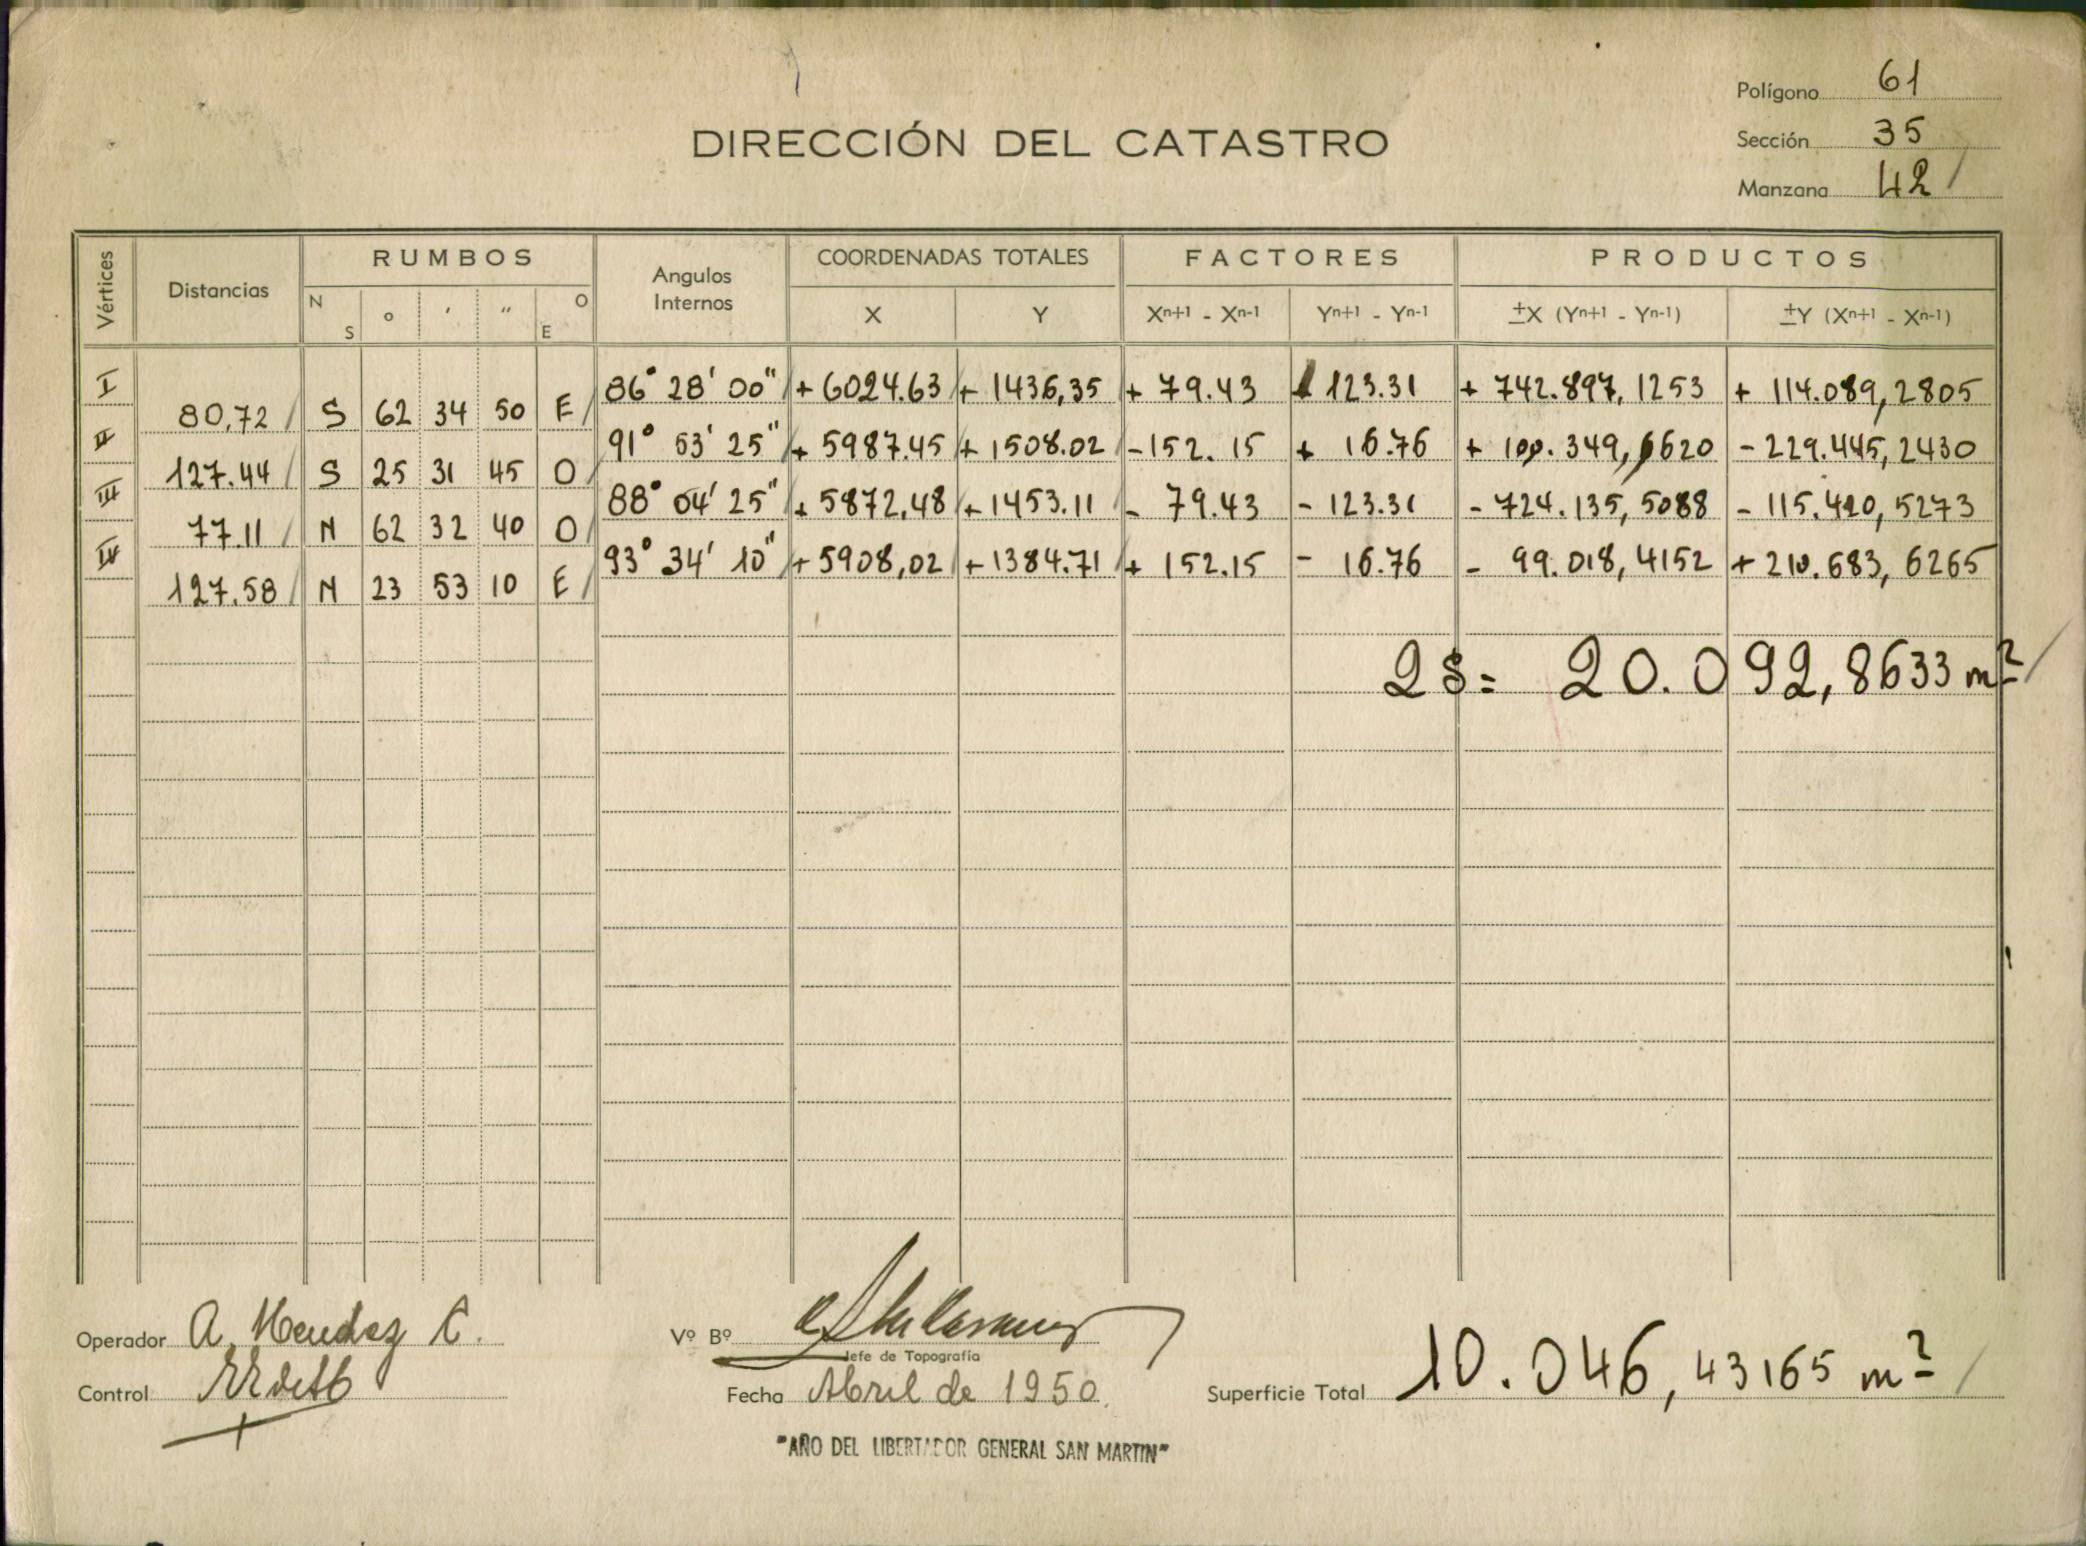 Polígono 61
DIRECCIÓN DEL CATASTRO
Sección 35
Manzana 42
Vértices Distancias RUMBOS Angulos Internos COORDENADAS TOTALES FACTORES PRODUCTOS
N S ° ' " O E X Y Xn+1 - Xn-1 Yn+1 - Yn-1 ±X (Yn+1 - Yn-1) ±Y (Xn+1 - Xn-1)
I 86° 28' 00" + 6024.63 + 1436,35 + 79.43 + 123.31 + 742.897, 1253 + 114.089, 2805
80,72 S 62 34 50 E
II 91° 53' 25" + 5987.45 + 1508.02 - 152.15 + 16.76 + 100.349, 6620 - 229.445, 2430
127.44 S 25 31 45 O
III 88° 04' 25" + 5872,48 + 1453.11 - 79.43 - 123.31 - 724.135, 5088 - 115.420, 5273
77.11 N 62 32 40 O
IV 93° 34' 10" + 5908,02 + 1384.71 + 152.15 - 16.76 - 99.018, 4152 + 210.683, 6265
127.58 N 23 53 10 E
2S = 20.092,8633 m²
Operador A. Mendez C.
Vº Bº
Jefe de Topografía
Control
Fecha Abril de 1950.
Superficie Total 10.046, 43165 m²
"AÑO DEL LIBERTADOR GENERAL SAN MARTIN"